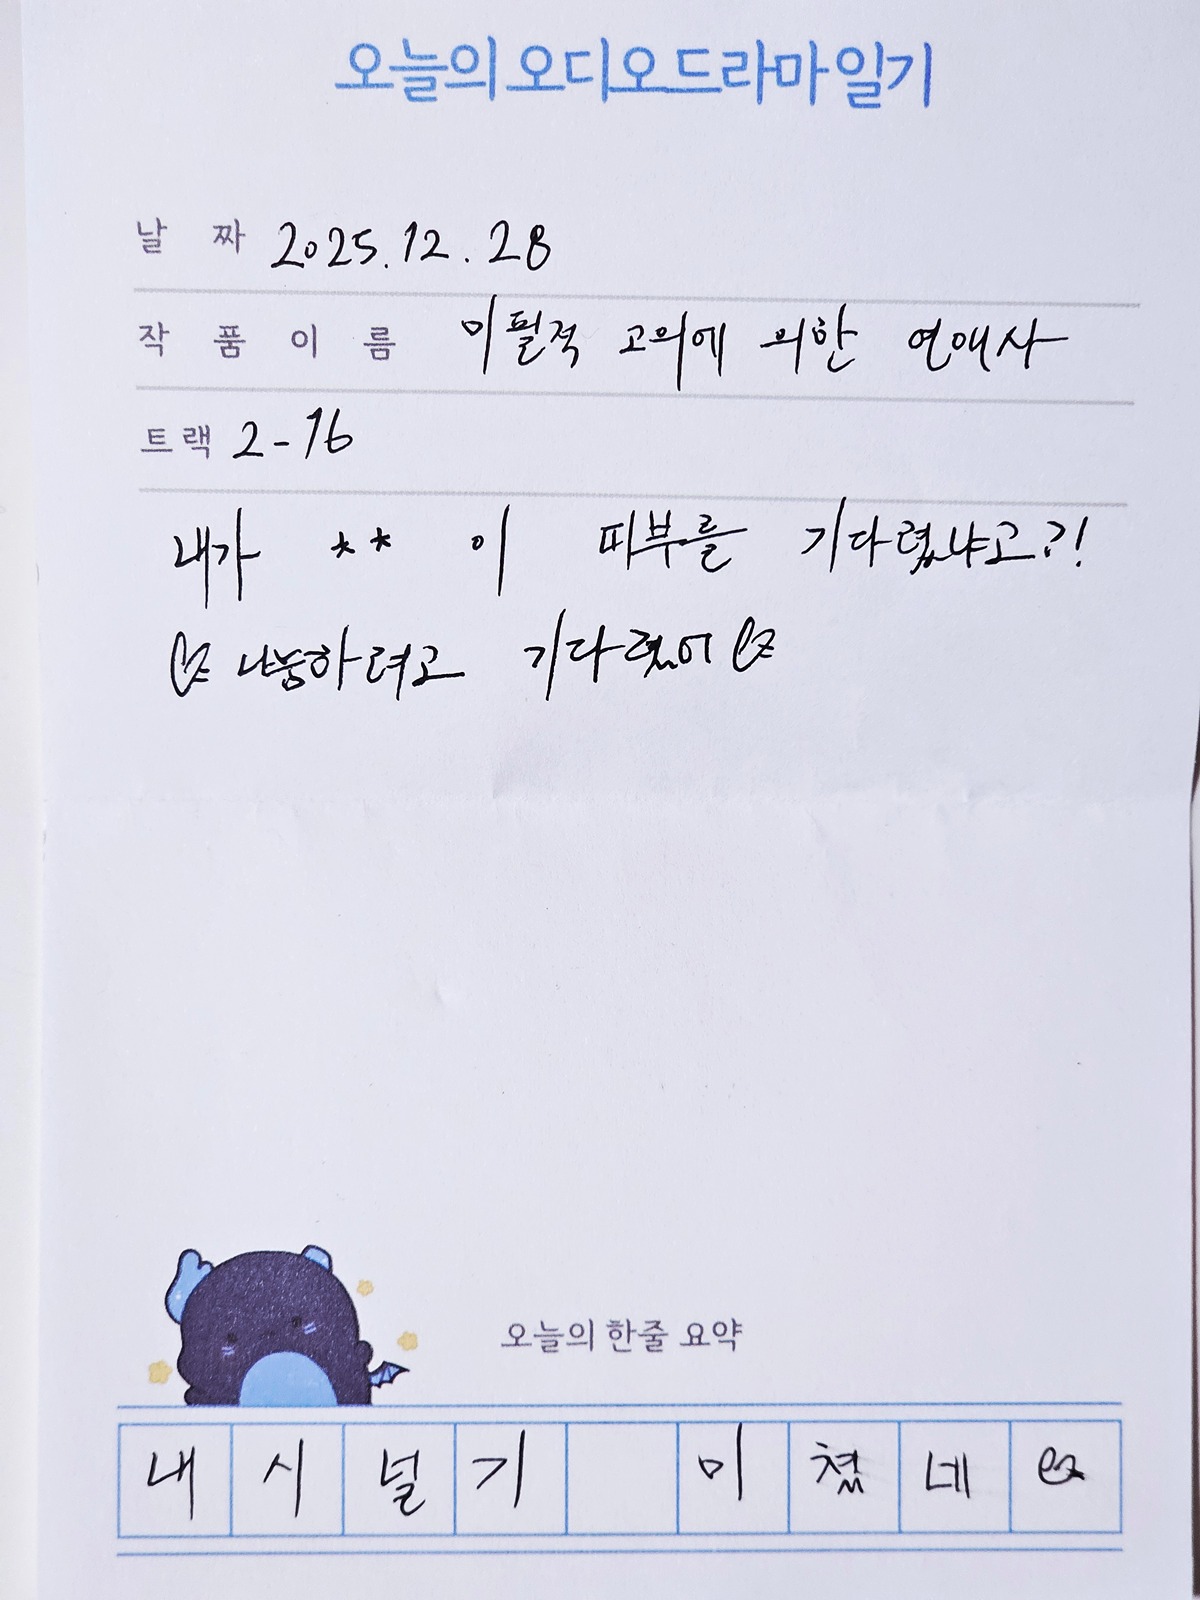 오늘의 오디오드라마 일기
날짜 2025.12.28
작품이름 미필적 고의에 의한 연애사
트랙 2-16
내가 ** 이 피부를 기다렸냐고?!
나눔하려고 기다렸어
오늘의 한줄 요약
내시널기 미쳤네